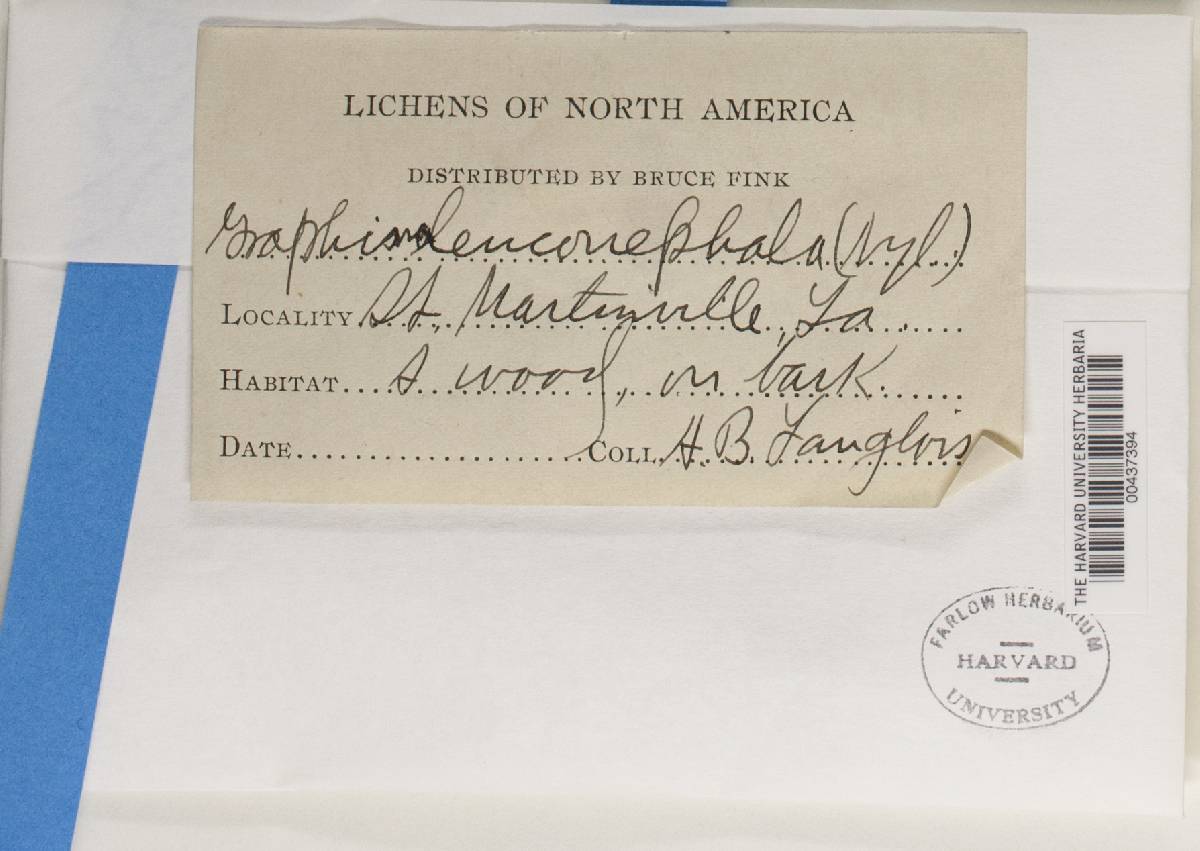 LICHENS OF NORTH AMERICA
DISTRIBUTED BY BRUCE FINK
(Nyl)
LOCALITY St. Martinville, La.
HABITAT on bark.
DATE COLL. H. B. Langlois
THE HARVARD UNIVERSITY HERBARIA
00437394
FARLOW HERBARIUM
HARVARD
UNIVERSITY